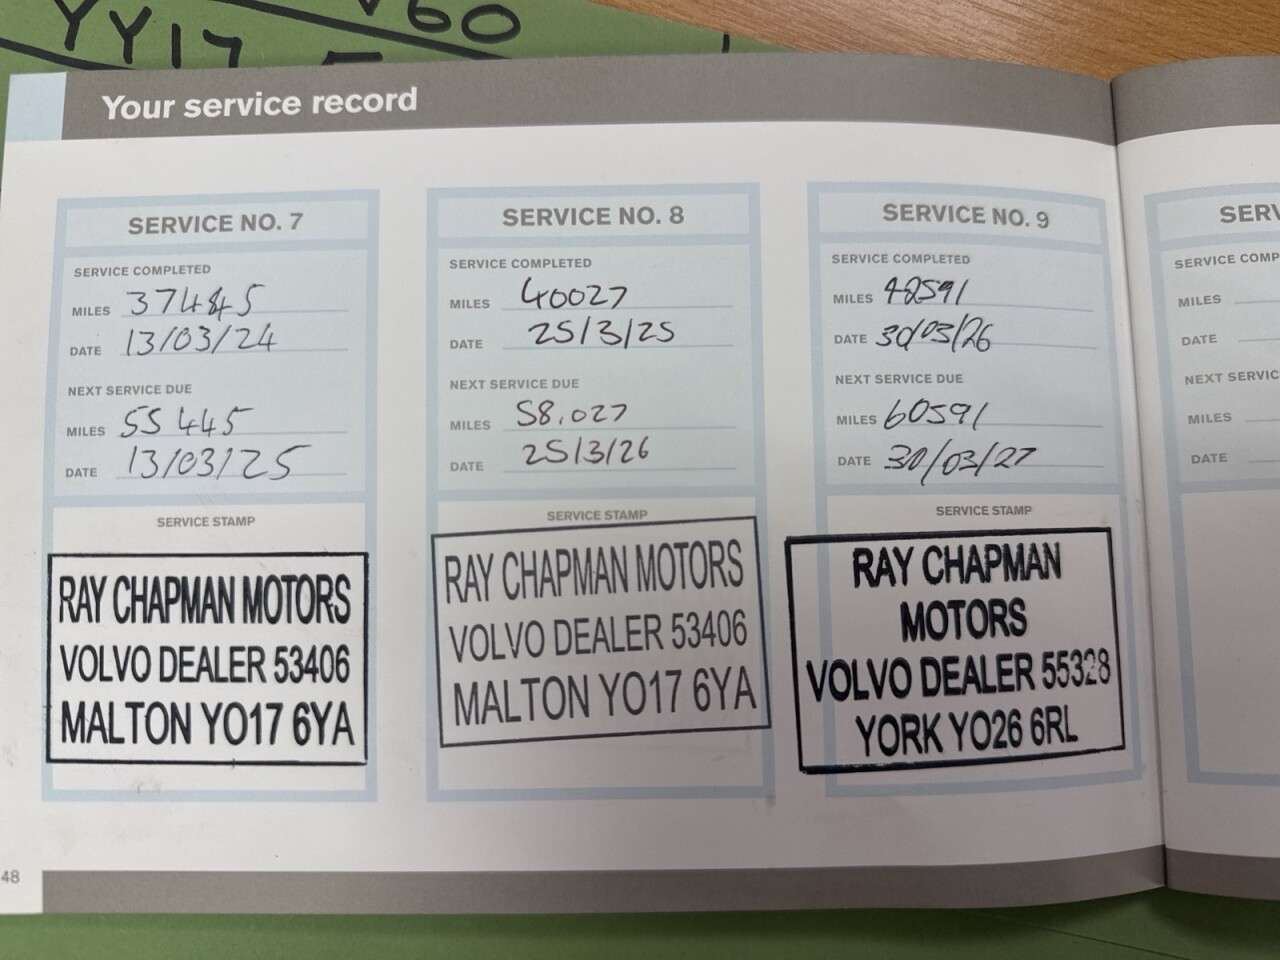 V60
YY17
Your service record
SERVICE NO. 7
SERVICE COMPLETED
MILES 37445
DATE 13/03/24
NEXT SERVICE DUE
MILES 55445
DATE 13/03/25
SERVICE STAMP
RAY CHAPMAN MOTORS
VOLVO DEALER 53406
MALTON YO17 6YA
SERVICE NO. 8
SERVICE COMPLETED
MILES 40027
DATE 25/3/25
NEXT SERVICE DUE
MILES 58.027
DATE 25/3/26
SERVICE STAMP
RAY CHAPMAN MOTORS
VOLVO DEALER 53406
MALTON YO17 6YA
SERVICE NO. 9
SERVICE COMPLETED
MILES 42591
DATE 30/03/26
NEXT SERVICE DUE
MILES 60591
DATE 30/03/27
SERVICE STAMP
RAY CHAPMAN
MOTORS
VOLVO DEALER 55328
YORK YO26 6RL
SERV
SERVICE COMP
MILES
DATE
NEXT SERVIC
MILES
DATE
48